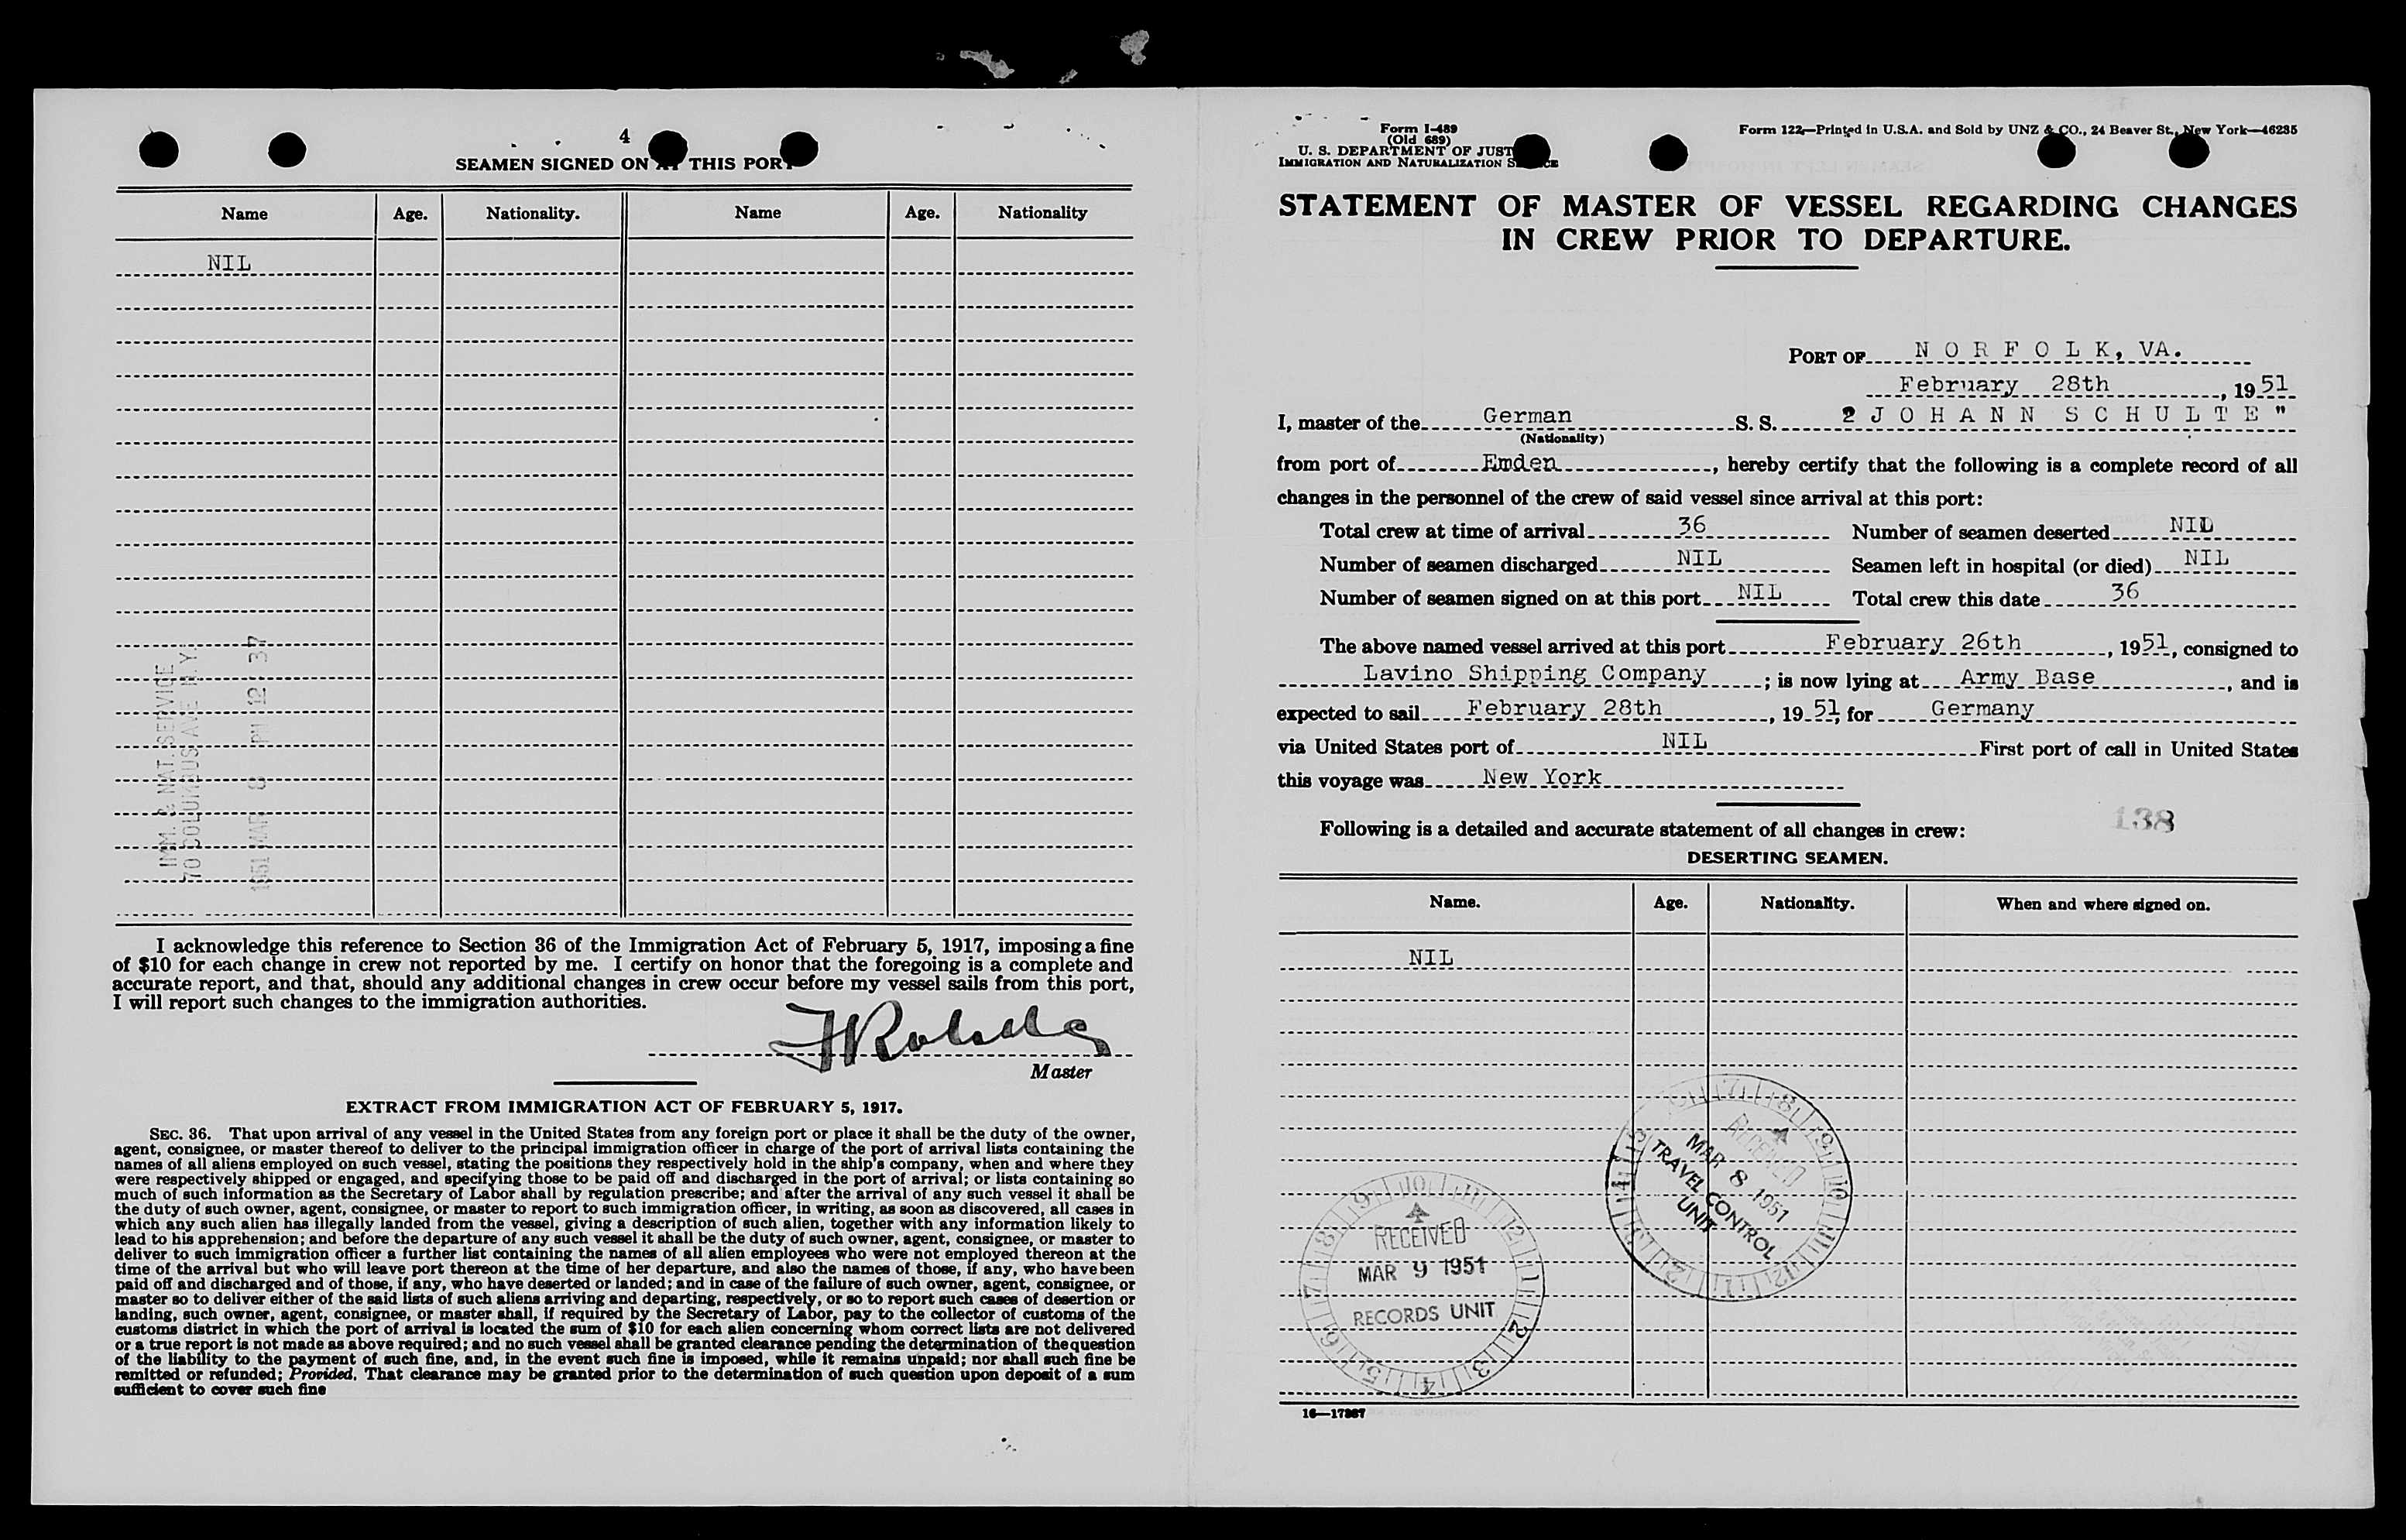 4
SEAMEN SIGNED ON THIS PORT
Name Age. Nationality. Name Age. Nationality
NIL
IMM. & NAT. SERVICE
70 COLUMBUS AVE N.Y.
1951 MAR 8 PM 12 37
I acknowledge this reference to Section 36 of the Immigration Act of February 5, 1917, imposing a fine
of $10 for each change in crew not reported by me. I certify on honor that the foregoing is a complete and
accurate report, and that, should any additional changes in crew occur before my vessel sails from this port,
I will report such changes to the immigration authorities.
Master
EXTRACT FROM IMMIGRATION ACT OF FEBRUARY 5, 1917.
SEC. 36. That upon arrival of any vessel in the United States from any foreign port or place it shall be the duty of the owner,
agent, consignee, or master thereof to deliver to the principal immigration officer in charge of the port of arrival lists containing the
names of all aliens employed on such vessel, stating the positions they respectively hold in the ship's company, when and where they
were respectively shipped or engaged, and specifying those to be paid off and discharged in the port of arrival; or lists containing so
much of such information as the Secretary of Labor shall by regulation prescribe; and after the arrival of any such vessel it shall be
the duty of such owner, agent, consignee, or master to report to such immigration officer, in writing, as soon as discovered, all cases in
which any such alien has illegally landed from the vessel, giving a description of such alien, together with any information likely to
lead to his apprehension; and before the departure of any such vessel it shall be the duty of such owner, agent, consignee, or master to
deliver to such immigration officer a further list containing the names of all alien employees who were not employed thereon at the
time of the arrival but who will leave port thereon at the time of her departure, and also the names of those, if any, who have been
paid off and discharged and of those, if any, who have deserted or landed; and in case of the failure of such owner, agent, consignee, or
master so to deliver either of the said lists of such aliens arriving and departing, respectively, or so to report such cases of desertion or
landing, such owner, agent, consignee, or master shall, if required by the Secretary of Labor, pay to the collector of customs of the
customs district in which the port of arrival is located the sum of $10 for each alien concerning whom correct lists are not delivered
or a true report is not made as above required; and no such vessel shall be granted clearance pending the determination of the question
of the liability to the payment of such fine, and, in the event such fine is imposed, while it remains unpaid; nor shall such fine be
remitted or refunded; Provided, That clearance may be granted prior to the determination of such question upon deposit of a sum
sufficient to cover such fine
Form I-489
(Old 689)
U. S. DEPARTMENT OF JUST
IMMIGRATION AND NATURALIZATION
Form 122—Printed in U.S.A. and Sold by UNZ & CO., 24 Beaver St., New York—46235
STATEMENT OF MASTER OF VESSEL REGARDING CHANGES
IN CREW PRIOR TO DEPARTURE.
PORT OF N O R F O L K, VA.
February 28th, 1951
I, master of the German S. S. 2 J O H A N N S C H U L T E "
(Nationality)
from port of Emden, hereby certify that the following is a complete record of all
changes in the personnel of the crew of said vessel since arrival at this port:
Total crew at time of arrival 36 Number of seamen deserted NIL
Number of seamen discharged NIL Seamen left in hospital (or died) NIL
Number of seamen signed on at this port NIL Total crew this date 36
The above named vessel arrived at this port February 26th, 1951, consigned to
Lavino Shipping Company; is now lying at Army Base, and is
expected to sail February 28th, 1951, for Germany
via United States port of NIL First port of call in United States
this voyage was New York
138
Following is a detailed and accurate statement of all changes in crew:
DESERTING SEAMEN.
Name. Age. Nationality. When and where signed on.
NIL
RECEIVED
MAR 8 1951
TRAVEL CONTROL
UNIT
RECEIVED
MAR 9 1951
RECORDS UNIT
16—17367